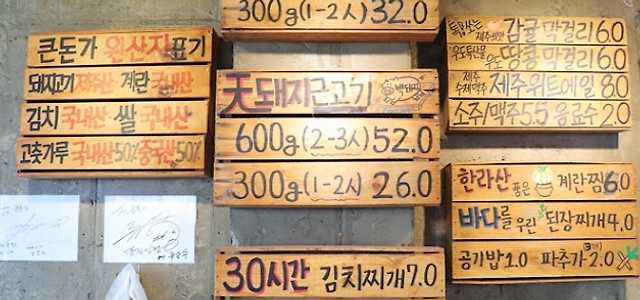 큰돈가 원산지표기
돼지고기 제주산 계란 국내산
김치 국내산 쌀 국내산
고춧가루 국내산50% 중국산50%
300g(1-2시) 32.0
天돼지근고기 백돼지
600g(2-3시) 52.0
300g(1-2시) 26.0
30시간 김치찌개7.0
톡쏘는 제주의맛 감귤 막걸리 6.0
우도특산물 우도 땅콩 막걸리 6.0
제주 수제맥주 제주위트에일 8.0
소주/맥주5.5 음료수 2.0
한라산 품은 계란찜 6.0
바다를 우린 된장찌개 4.0
공기밥1.0 파추가2.0